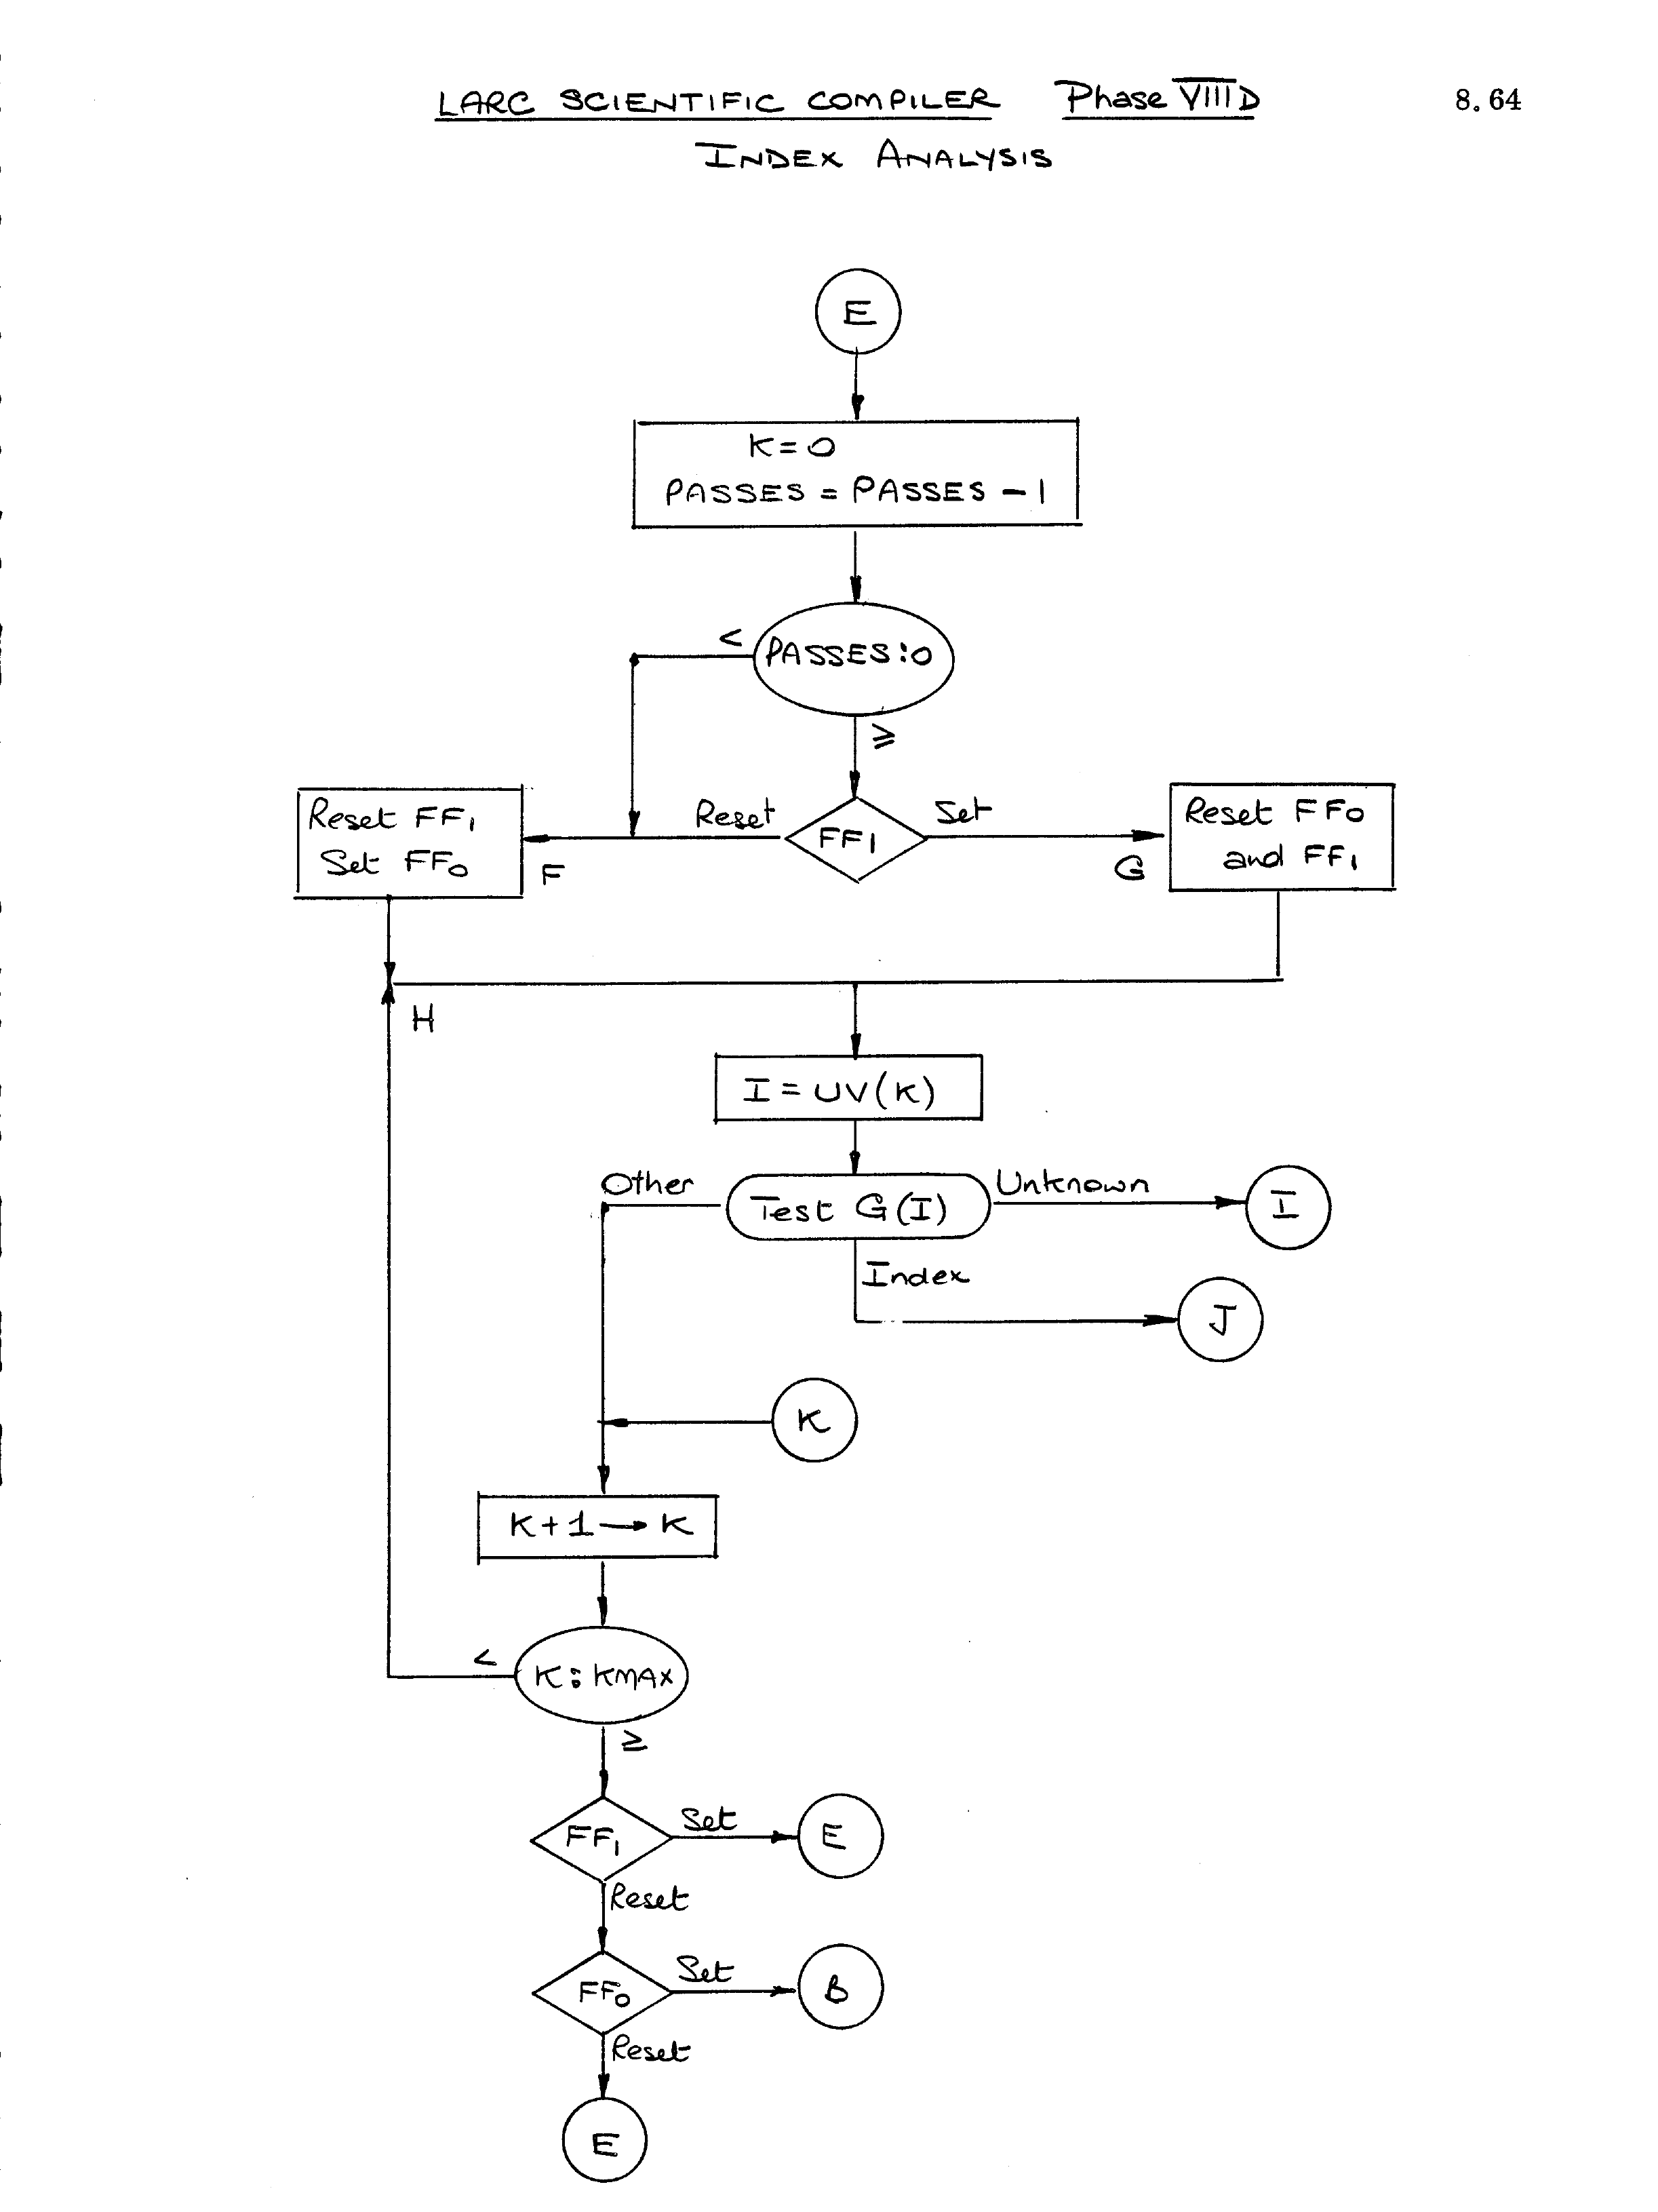 LARC SCIENTIFIC COMPILER Phase VIII D 8.64
INDEX ANALYSIS
E
K = 0
PASSES = PASSES - 1
<
PASSES : 0
≥
Reset FF1
Set FF0
F
Reset
FF1
Set
G
Reset FF0
and FF1
H
I = UV(K)
Other
Test G(I)
Unknown
I
Index
J
K
K + 1 → K
<
K : KMAX
≥
FF1
Set
E
Reset
FF0
Set
B
Reset
E